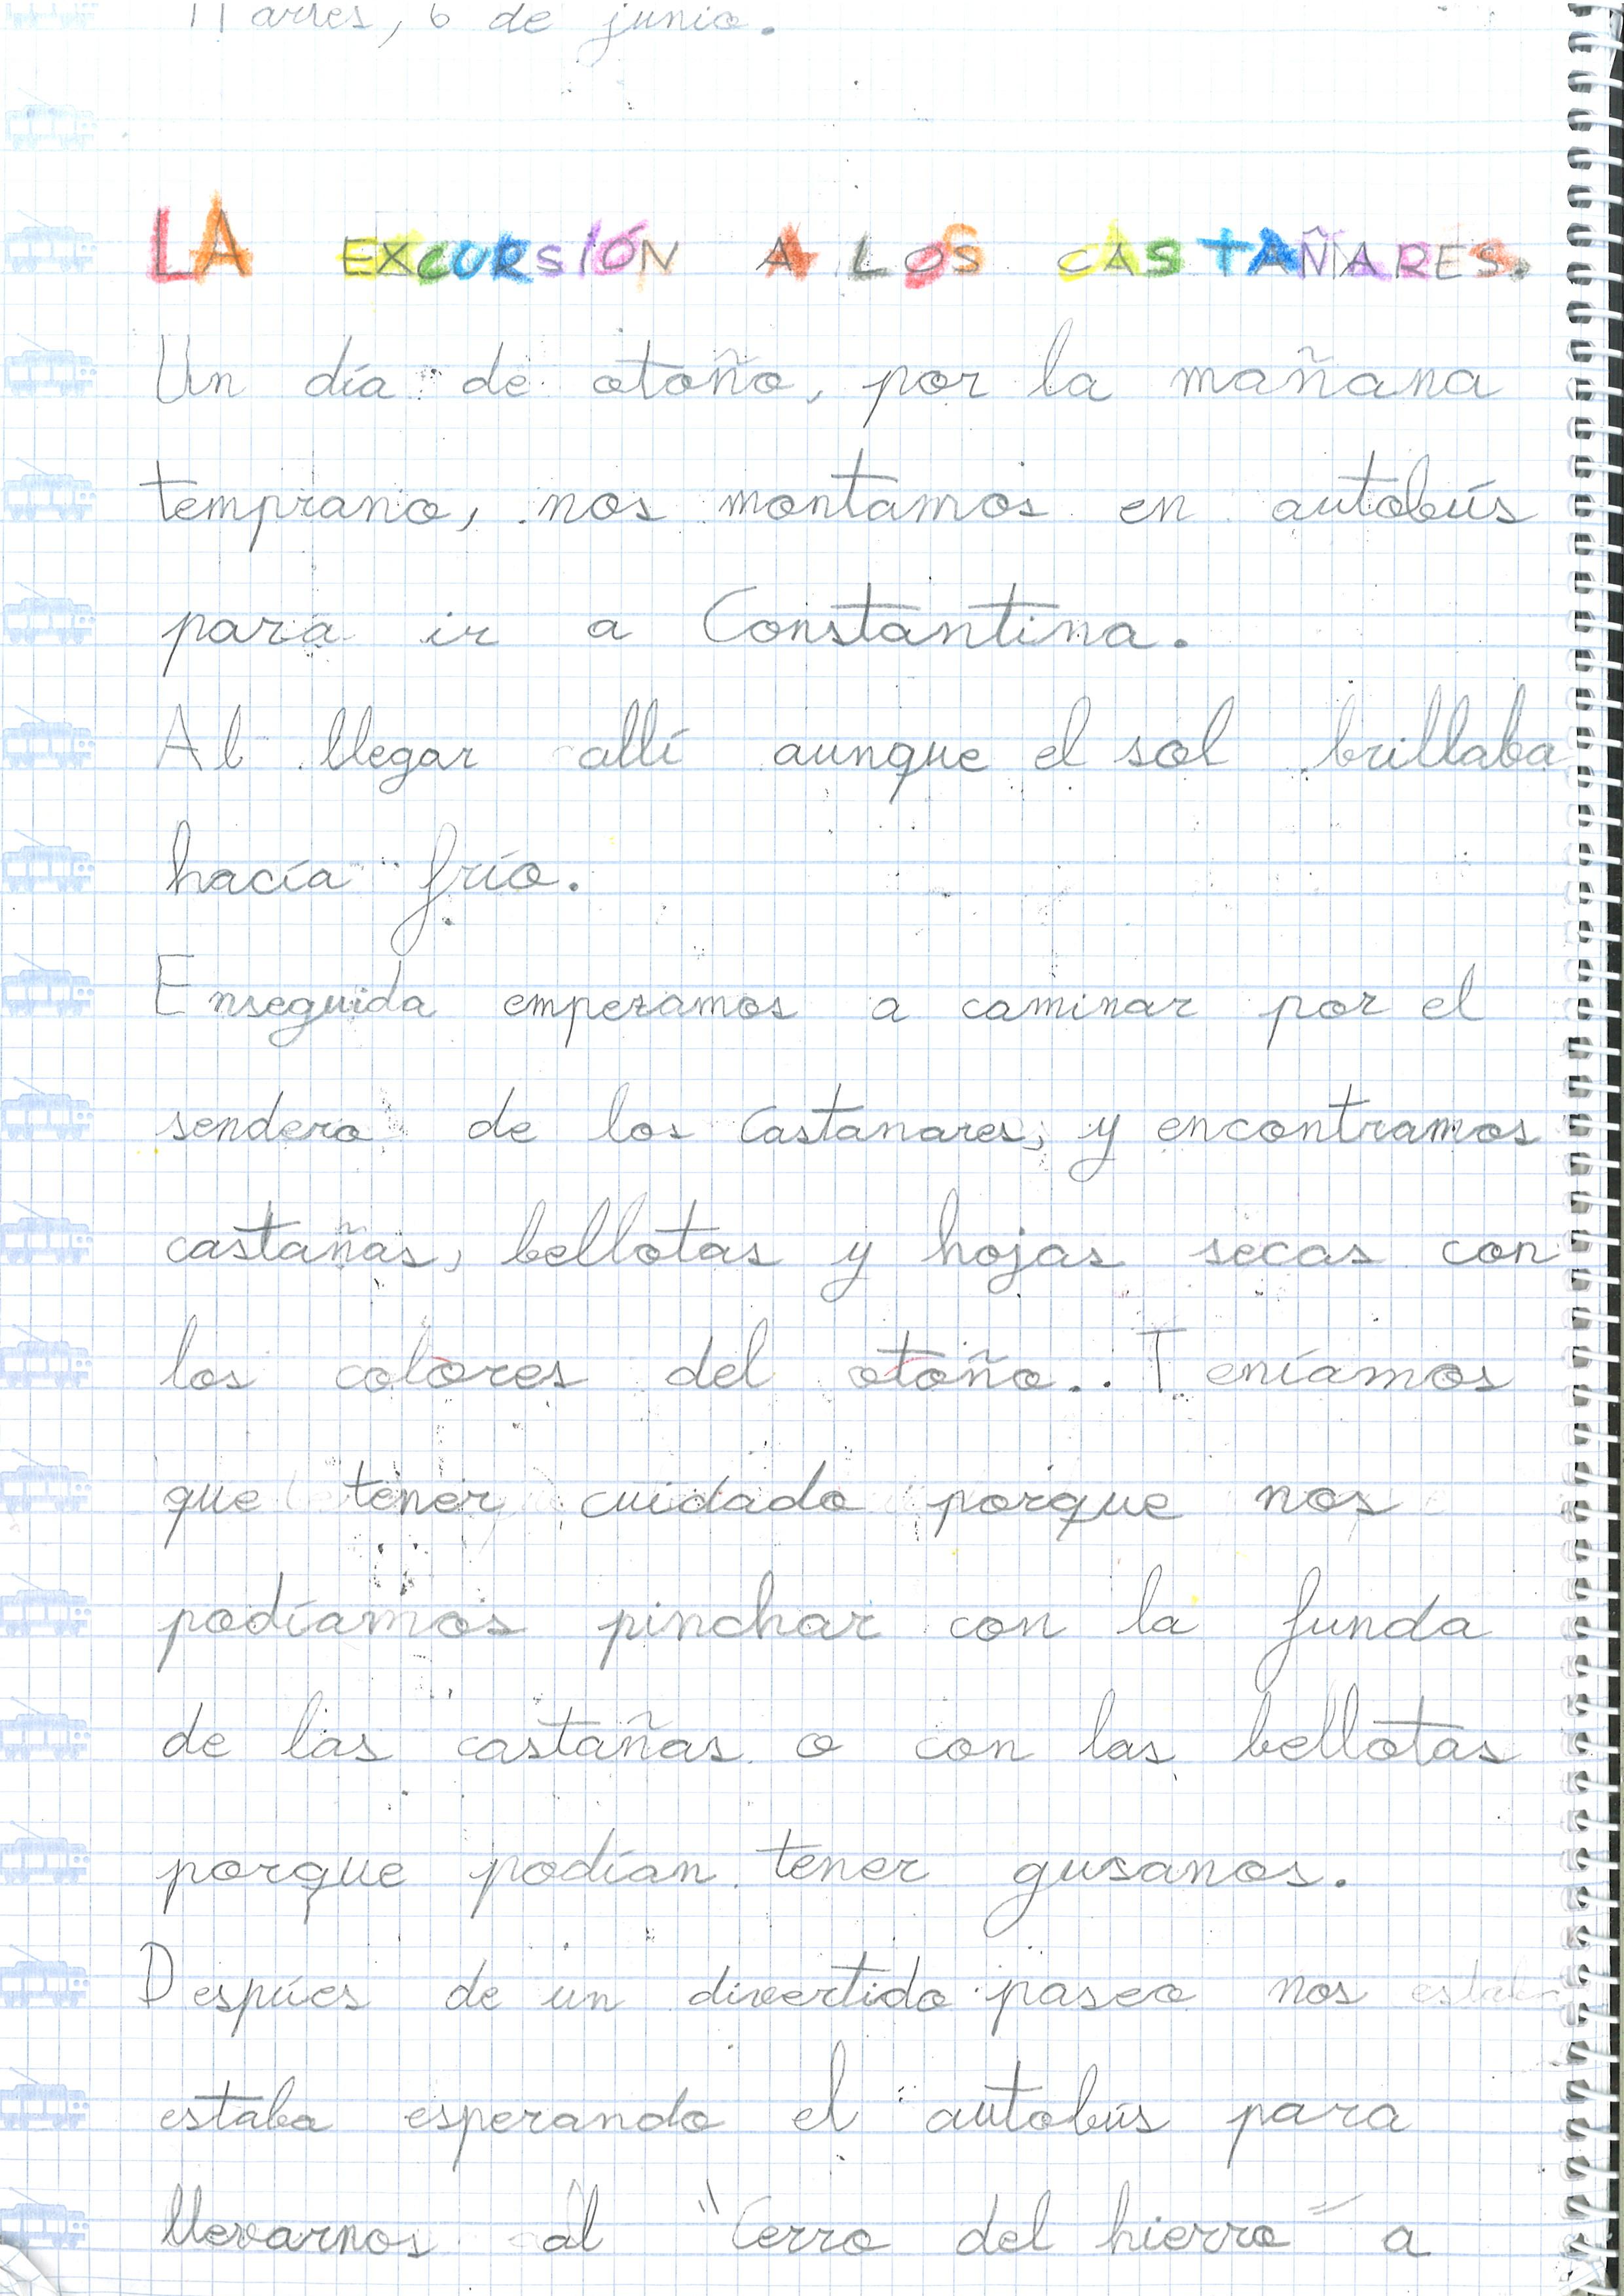 Martes, 6 de junio.
LA EXCURSIÓN A LOS CASTAÑARES.
Un día de otoño, por la mañana
temprano, nos montamos en autobús
para ir a Constantina.
Al llegar allí aunque el sol brillaba
hacía frío.
Enseguida empezamos a caminar por el
sendero de los Castanares, y encontramos
castañas, bellotas y hojas secas con
los colores del otoño.. Teníamos
que tener cuidado porque nos
podíamos pinchar con la funda
de las castañas o con las bellotas
porque podían tener gusanos.
Despúes de un divertido paseo nos
estaba esperando el autobús para
llevarnos al "Cerro del hierro" a